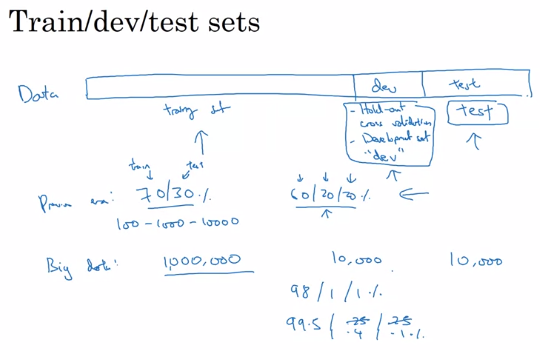 Train/dev/test sets
Data
dev
test
training set
- Hold-out
cross validation
- Development set
"dev"
test
train
test
Previous era: 70/30 %
60/20/20 %
100 - 1000 - 10000
Big data: 1,000,000
10,000
10,000
98 / 1 / 1 %
99.5 / .25 / .25
.4 / .1 %